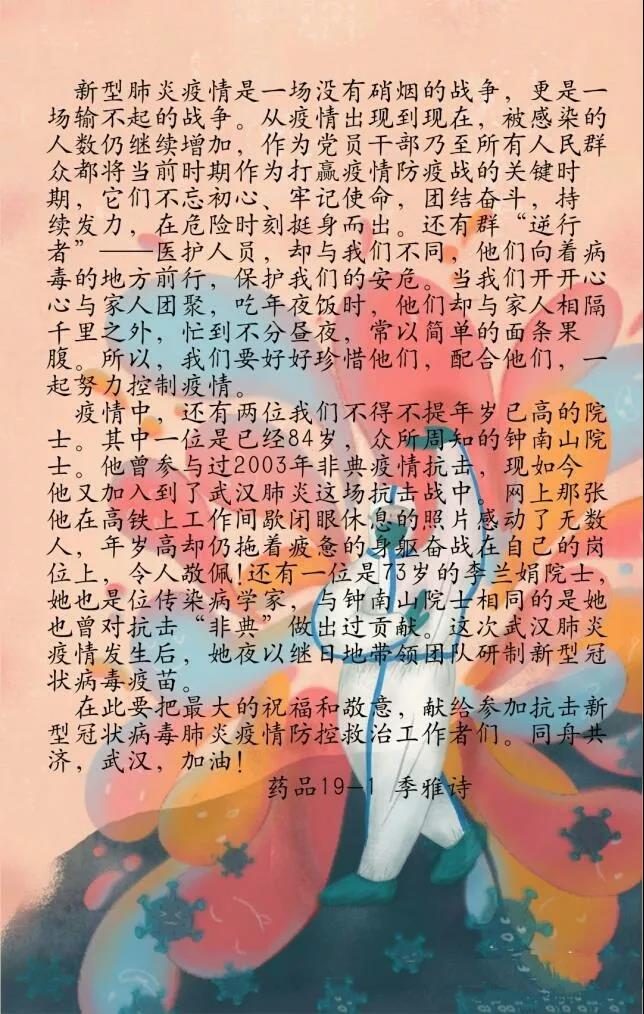 新型肺炎疫情是一场没有硝烟的战争，更是一
场输不起的战争。从疫情出现到现在，被感染的
人数仍继续增加，作为党员干部乃至所有人民群
众都将当前时期作为打赢疫情防疫战的关键时
期，它们不忘初心、牢记使命，团结奋斗，持
续发力，在危险时刻挺身而出。还有群“逆行
者”——医护人员，却与我们不同，他们向着病
毒的地方前行，保护我们的安危。当我们开开心
心与家人团聚，吃年夜饭时，他们却与家人相隔
千里之外，忙到不分昼夜，常以简单的面条果
腹。所以，我们要好好珍惜他们，配合他们，一
起努力控制疫情。
疫情中，还有两位我们不得不提年岁已高的院
士。其中一位是已经84岁，众所周知的钟南山院
士。他曾参与过2003年非典疫情抗击，现如今
他又加入到了武汉肺炎这场抗击战中。网上那张
他在高铁上工作间歇闭眼休息的照片感动了无数
人，年岁高却仍拖着疲惫的身躯奋战在自己的岗
位上，令人敬佩！还有一位是73岁的李兰娟院士，
她也是位传染病学家，与钟南山院士相同的是她
也曾对抗击“非典”做出过贡献。这次武汉肺炎
疫情发生后，她夜以继日地带领团队研制新型冠
状病毒疫苗。
在此要把最大的祝福和敬意，献给参加抗击新
型冠状病毒肺炎疫情防控救治工作者们。同舟共
济，武汉，加油！
药品19-1 季雅诗